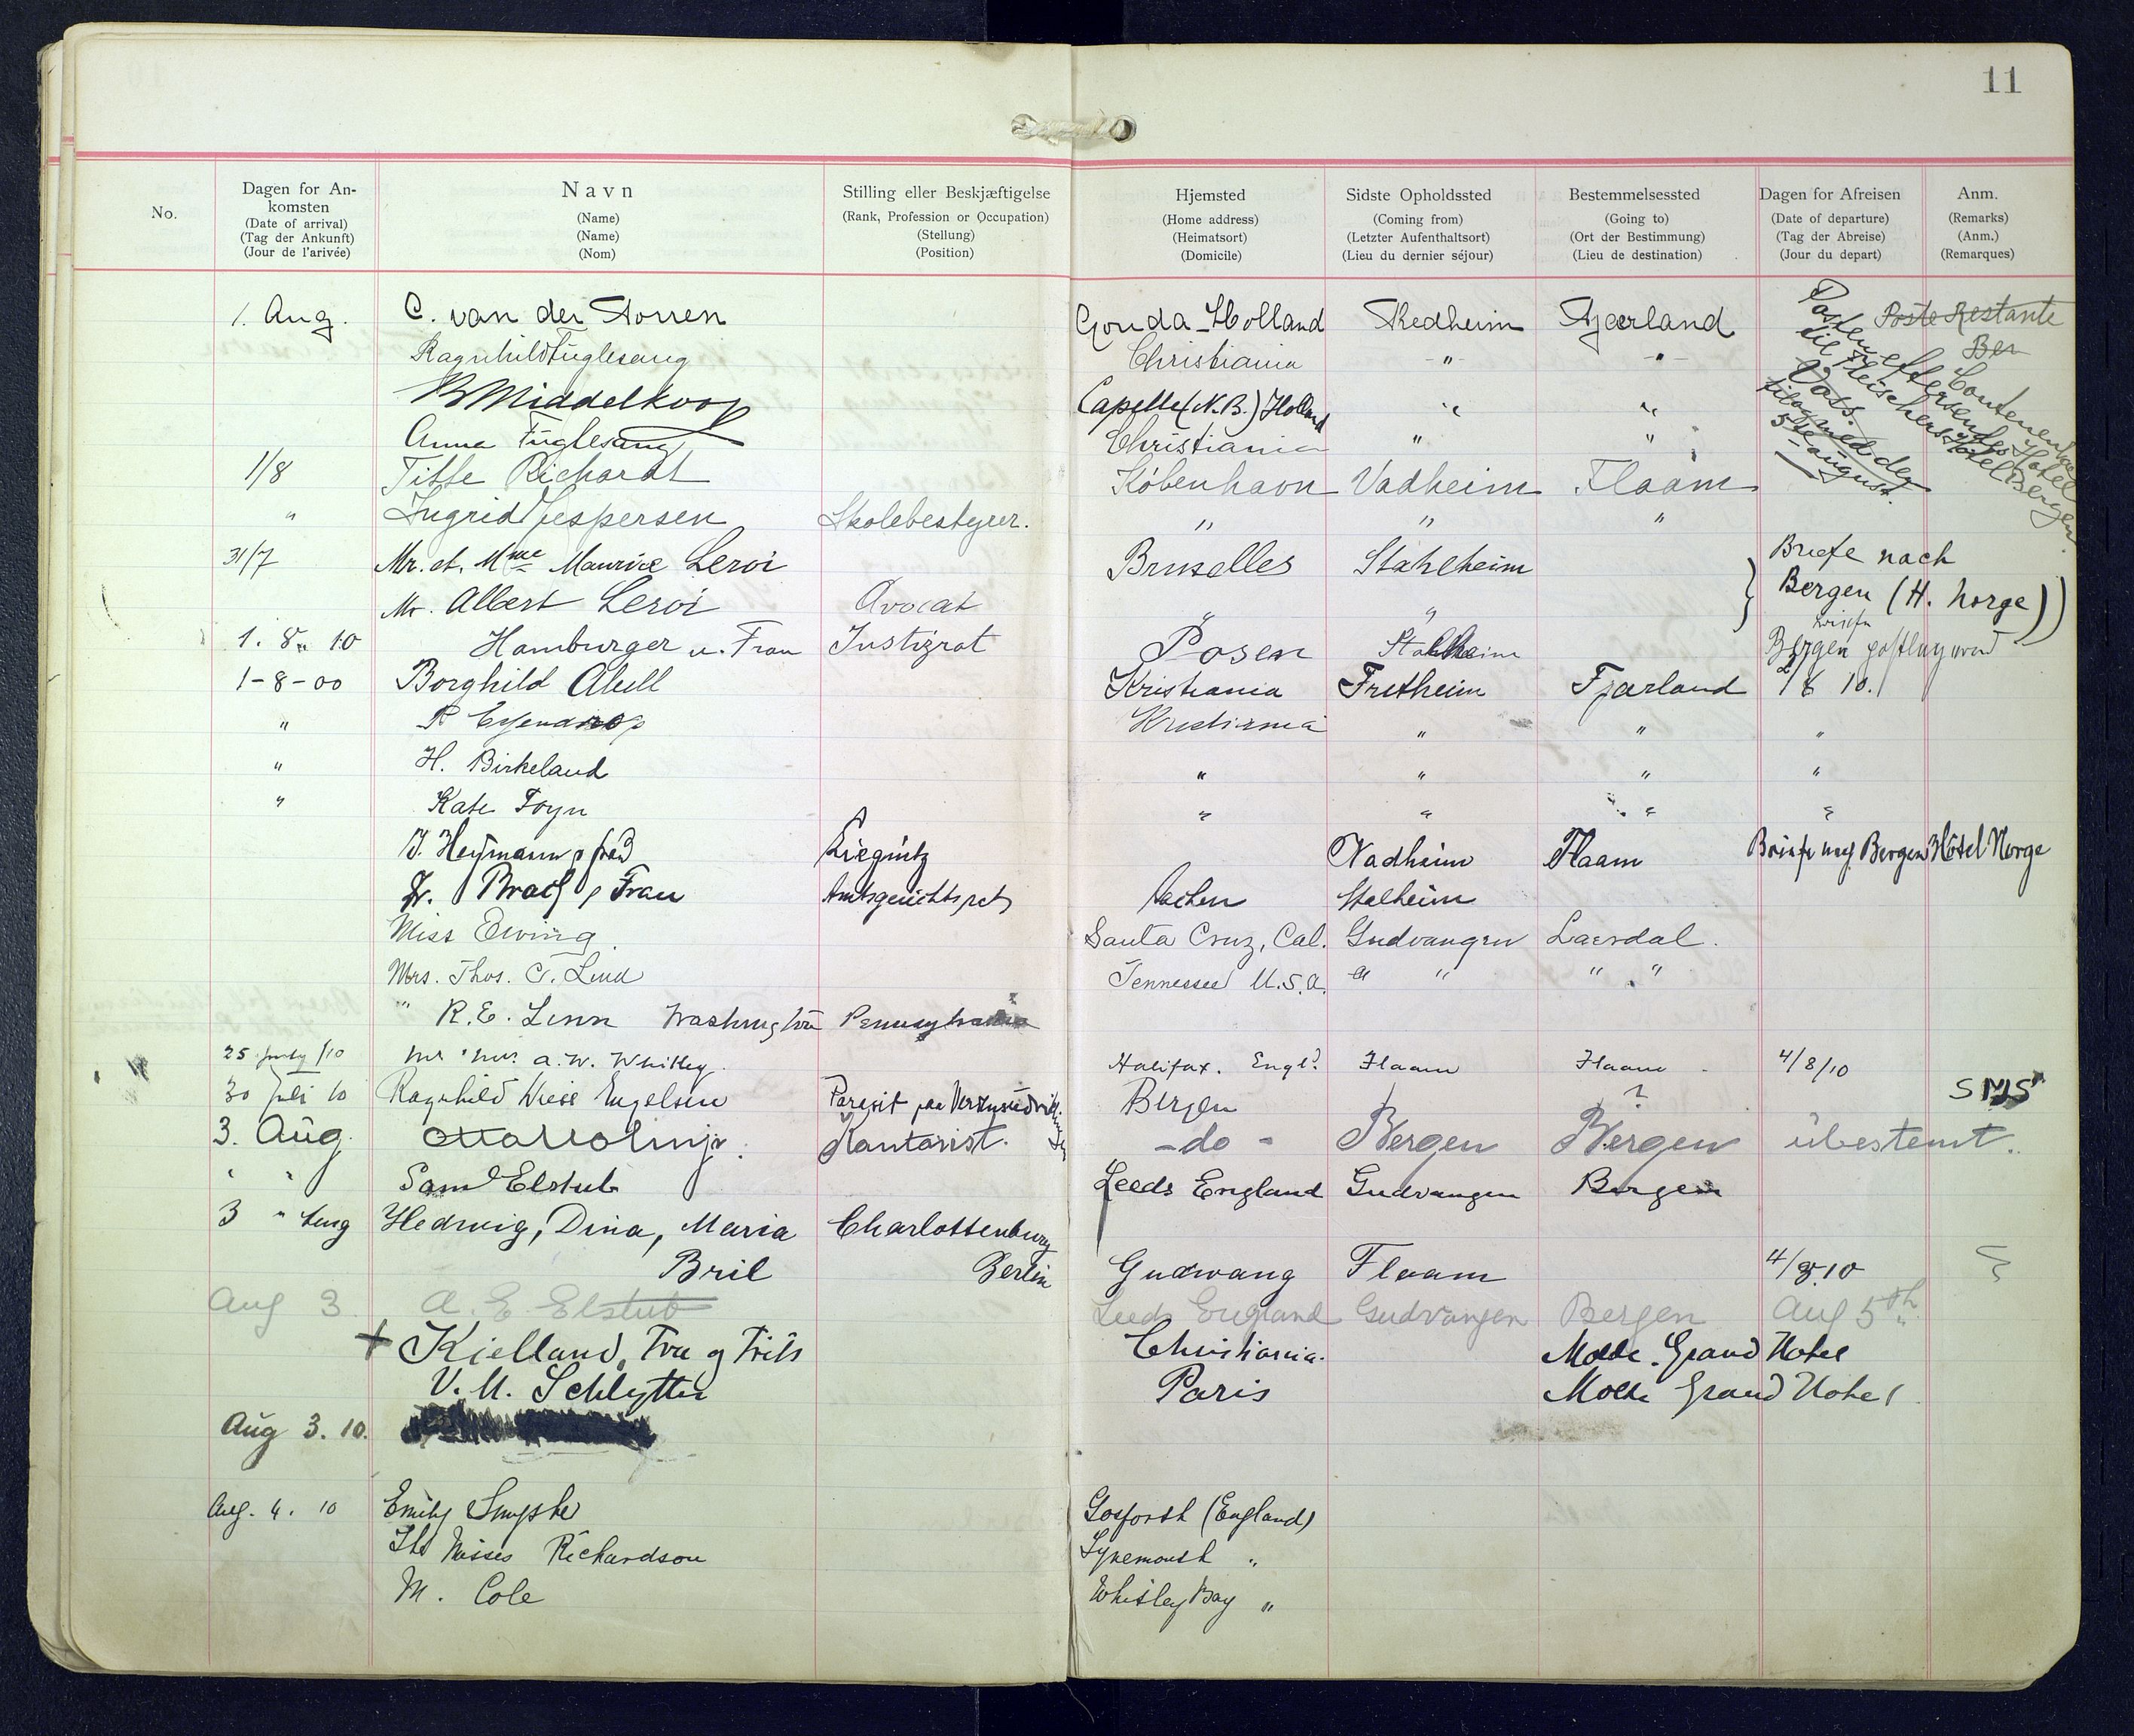 11
No. Dagen for Ankomsten (Date of arrival) (Tag der Ankunft) (Jour de l'arivée) Navn (Name) (Name) (Nom) Stilling eller Beskjæftigelse (Rank, Profession or Occupation) (Stellung) (Position) Hjemsted (Home address) (Heimatsort) (Domicile) Sidste Opholdssted (Coming from) (Letzter Aufenthaltsort) (Lieu du dernier séjour) Bestemmelsessted (Going to) (Ort der Bestimmung) (Lieu de destination) Dagen for Afreisen (Date of departure) (Tag der Abreise) (Jour du depart) Anm. (Remarks) (Anm.) (Remarques)
1. Aug. C. van der Gouda-Holland Poste Restante
Ragnhild Fuglesang Christiania -"- -"- Ber
Middelkoop Capelle (N.B.) Holland " "
Anna Fuglesang Christiania " "
1/8 Richardt København Vadheim Flaam
" Ingrid Jespersen Skolebestyrer. " " "
Posten eftersendes
til Fleischers Hotel
Vos.
5te august.
Hotel
Bergen
31/7 Mr. et. Mme Maurice Leroi Bruxelles Stahlheim Briefe nach
Mr. Albert Leroi Avocat " " Bergen (H. Norge)
1. 8. 10 Hamburger u. Frau Justizrat Posen Stahlheim Bergen
1-8-00 Borghild Abell Kristiania Fretheim Fjærland 2/8 10.
" " " "
" H. Birkeland " " " "
" Kate Foyn " " " "
J. Heymann Liegnitz Vadheim Flaam Bergen Hôtel Norge
Dr. Frau Amtsgerichtsrat Aachen Stalheim
Miss Ewing. Santa Cruz, Cal. Gudvangen Laerdal.
Mrs. Thos. Tennessee U.S.A. " " " "
" R.E. Linn Washington Pennsylvania
25 July /10 Mr Mrs. A.W. Whitley. Halifax. Engld Flaam Flaam 4/8/10
30 juli 10 Ragnhild Wiese Engelsen Bergen ?
3. Aug. Kantorist. -do- Bergen Bergen übestemt.
" " Saml Elstub Leeds England Gudvangen Bergen
3 " Aug Hedwig, Dina, Maria Charlottenburg
Bril Berlin Gudwang Flaam 4/8.10
Aug 3. A. E. Elstub Leeds England Gudvangen Bergen Aug 5th
+ Kielland, Fru og Frits Christiania. Molde. Grand Hotel
V. M. Schlytter Paris Molde Grand Hotel
Aug 3. 10.
Aug. 4. 10 Emily Gosforth (England)
The Misses Richardson Tynemouth "
M. Cole Whitley Bay "